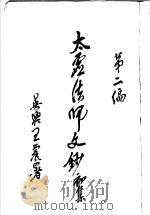 第二編
太虛法師文鈔初集
吳興王震署